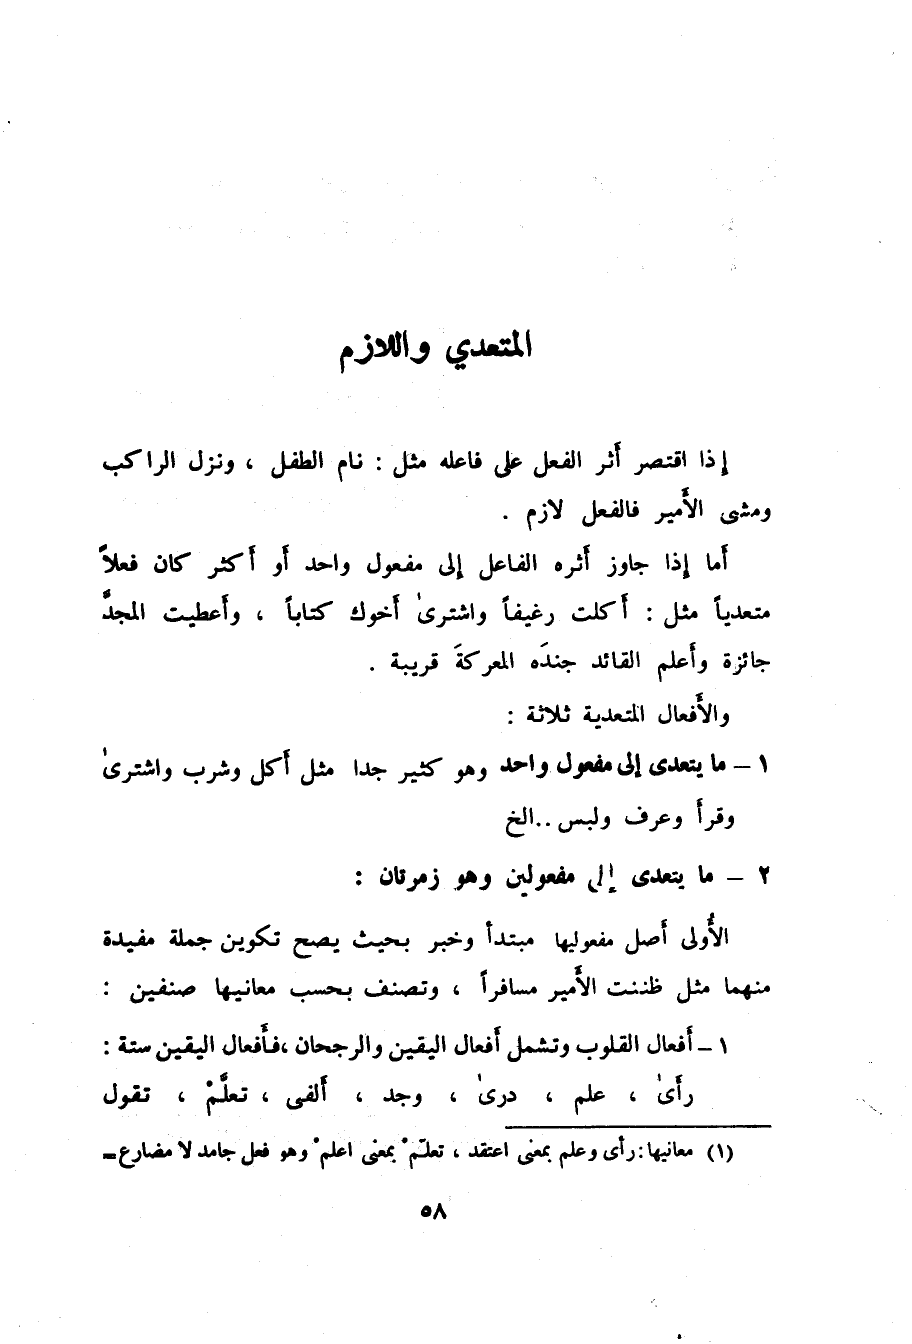 المتعدي واللازم
إذا اقتصر أثر الفعل على فاعله مثل : نام الطفل ، ونزل الراكب
ومشى الأمير فالفعل لازم .
أما إذا جاوز أثره الفاعل إلى مفعول واحد أو أكثر كان فعلاً
متعدياً مثل : أكلت رغيفاً واشترىٰ أخوك كتاباً ، وأعطيت المجدَّ
جائزة وأعلم القائد جندَه المعركةَ قريبة .
والأفعال المتعدية ثلاثة :
١ – ما يتعدى إلى مفعول واحد وهو كثير جدا مثل أكل وشرب واشترىٰ
وقرأ وعرف ولبس ..الخ
٢ – ما يتعدى إلى مفعولين وهو زمرتان :
الأُولى أصل مفعوليها مبتدأ وخبر بحيث يصح تكوين جملة مفيدة
منهما مثل ظننت الأمير مسافراً ، وتصنف بحسب معانيها صنفين :
١ – أفعال القلوب وتشمل أفعال اليقين والرجحان ،فأفعال اليقين ستة :
رأىٰ ، علم ، درىٰ ، وجد ، ألفى ، تعلَّمْ ، تقول
(١) معانيها : رأى وعلم بمعنى اعتقد ، تعلّمْ بمعنى اعلمْ وهو فعل جامد لا مضارع –
٥٨